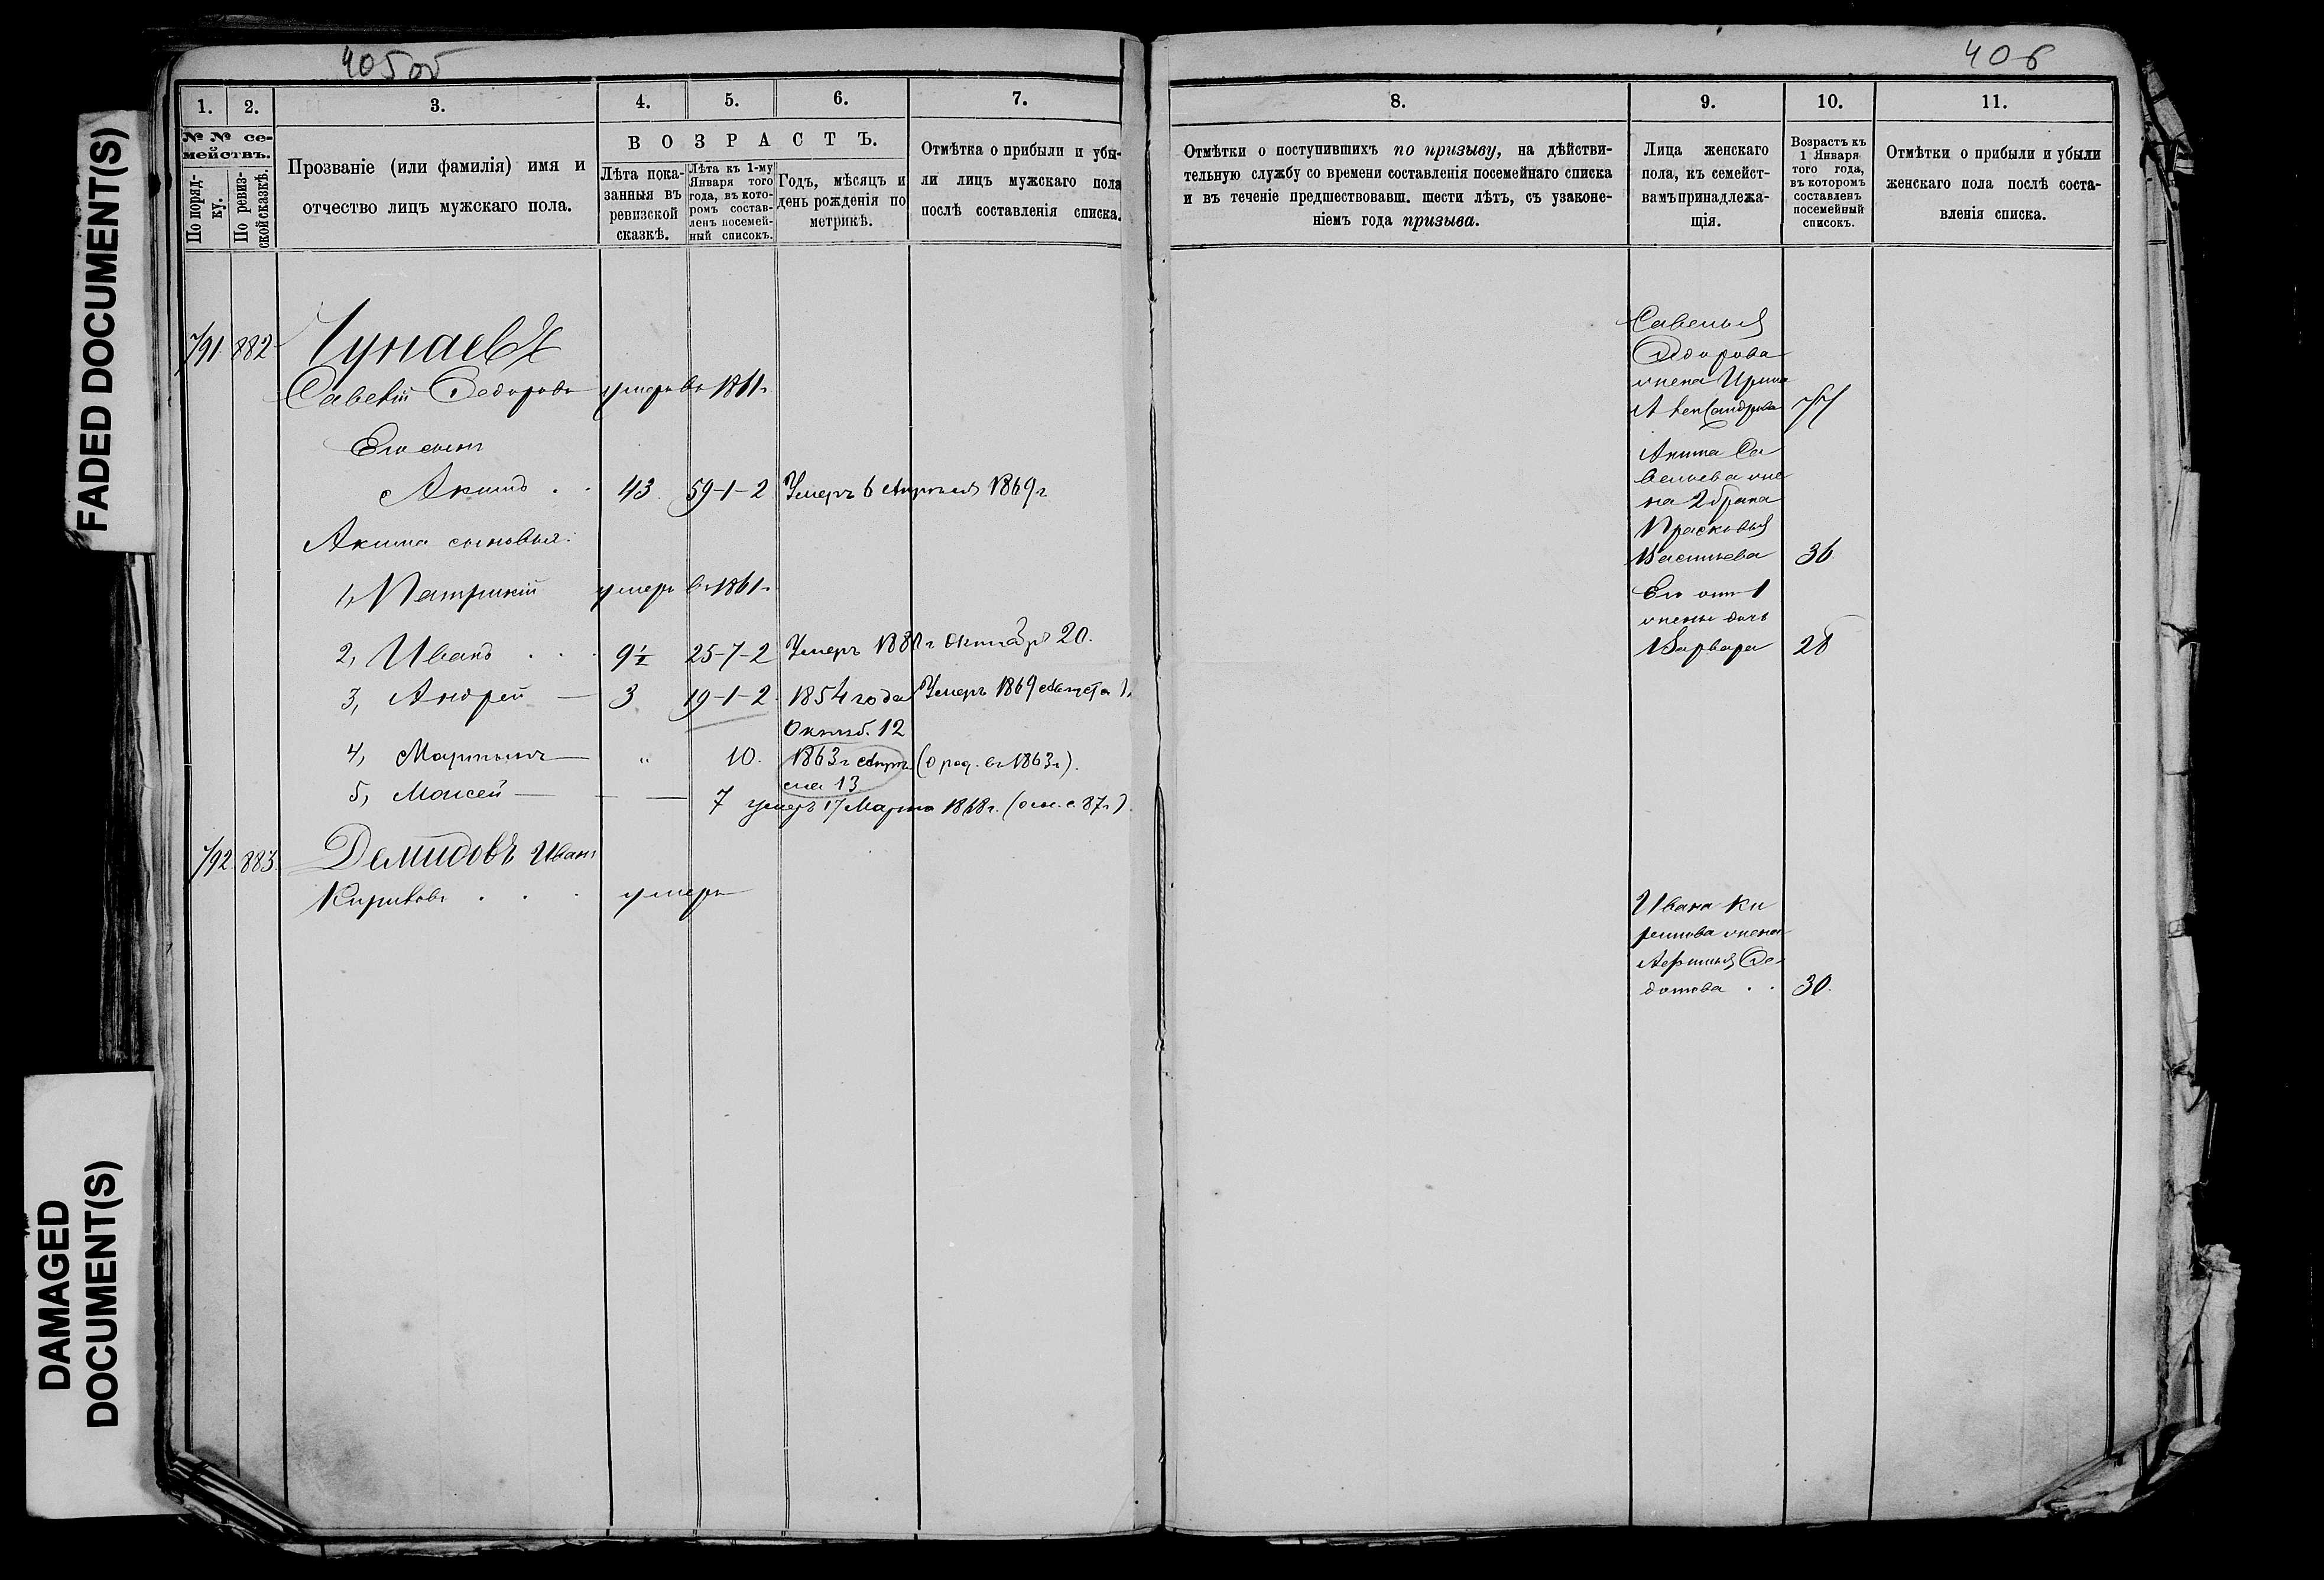 405 об
406
FADED DOCUMENT(S)
DAMAGED
DOCUMENT(S)
1. 2. 3. 4. 5. 6. 7.
№ № се-
мействъ.
По поряд-
ку.
По ревиз-
ской сказкѣ.
Прозваніе (или фамилія) имя и
отчество лицъ мужскаго пола.
ВОЗРАСТЪ.
Лѣта пока-
занныя въ
ревизской
сказкѣ.
Лѣта къ 1-му
Января того
года, въ кото-
ромъ состав-
ленъ посемей-
ный списокъ.
Годъ, мѣсяцъ и
день рожденія по
метрикѣ.
Отмѣтка о прибыли и убы-
ли лицъ мужскаго пола
послѣ составленія списка.
791 882 Чунаевъ
Савелій Федоровъ умеръ въ 18
Его сынъ
Акимъ . . 43 59-1-2 Умеръ 6 Апреля 1869 г
Акима сыновья:
1, Патрикій умеръ въ 1861 г
2, Иванъ . . . 9½ 25-7-2 Умеръ 188 г Октябр 20.
3, Андрей — 3 19-1-2 1854 года Умеръ 1869 Августа
Октяб. 12
4, Мартынъ — „ 10. 1863 г Апрѣ (о род. въ 1863 г).
ля 13
5, Моисей — — — 7 умеръ 17 Марта 1868 г.
792 883 Демидовъ Иванъ
Кириловъ . . . умеръ
8. 9. 10. 11.
Отмѣтки о поступившихъ по призыву, на дѣйстви-
тельную службу со времени составленія посемейнаго списка
и въ теченіе предшествовавш. шести лѣтъ, съ узаконе-
ніемъ года призыва.
Лица женскаго
пола, къ семейст-
вамъ принадлежа-
щія.
Возрастъ къ
1 Января
того года,
въ которомъ
составленъ
посемейный
списокъ.
Отмѣтки о прибыли и убыли
женскаго пола послѣ соста-
вленія списка.
Савелья
Федорова
жена Ирина
Александрова 77
Акима Са
вельева же
на 2 брака
Прасковья
Васильева 36
Его отъ 1
жены дочь
Варвара 28
Ивана Ки
рилова жена
Афимья Фе
дотова . . 30.